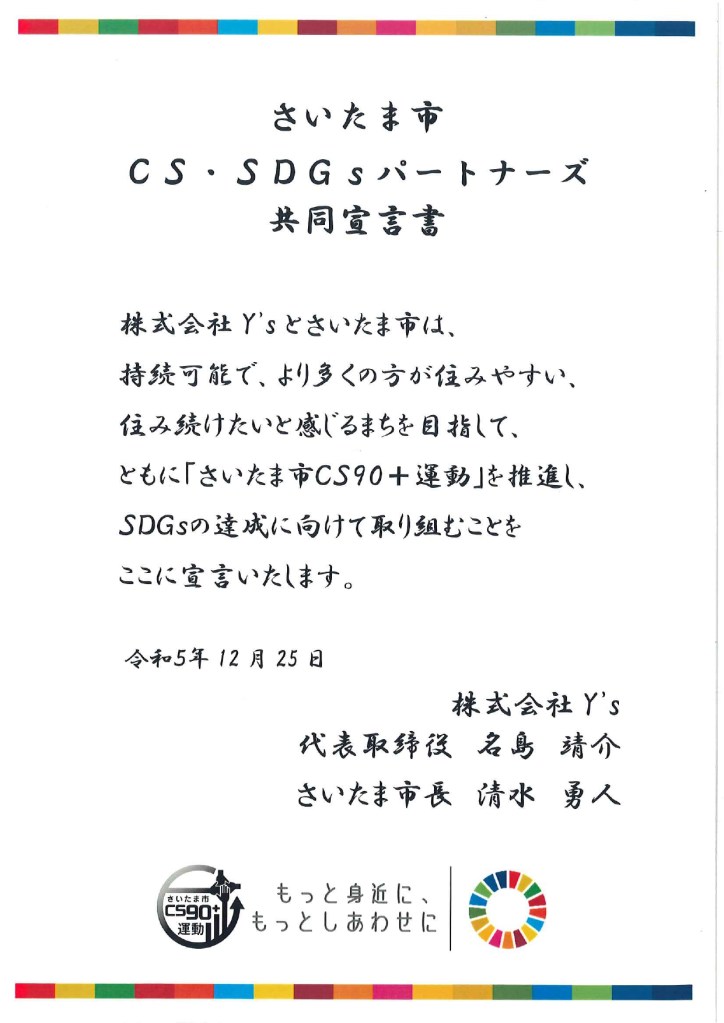 さいたま市
CS・SDGsパートナーズ
共同宣言書
株式会社Y'sとさいたま市は、
持続可能で、より多くの方が住みやすい、
住み続けたいと感じるまちを目指して、
ともに「さいたま市CS90＋運動」を推進し、
SDGsの達成に向けて取り組むことを
ここに宣言いたします。
令和5年 12 月 25 日
株式会社Y's
代表取締役 名島 靖介
さいたま市長 清水 勇人
さいたま市
CS90+
運動
もっと身近に、
もっとしあわせに